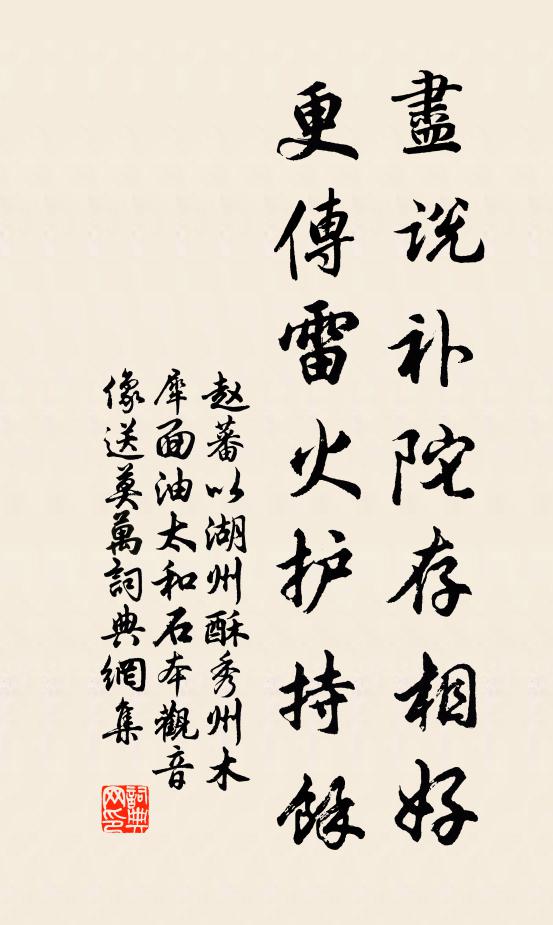 盡说补陀存相好
更傳雷火护持餘
赵蕃以湖州酥秀州木
犀面油太和石本觀音
像送莫萬詞典網集
詞典网印